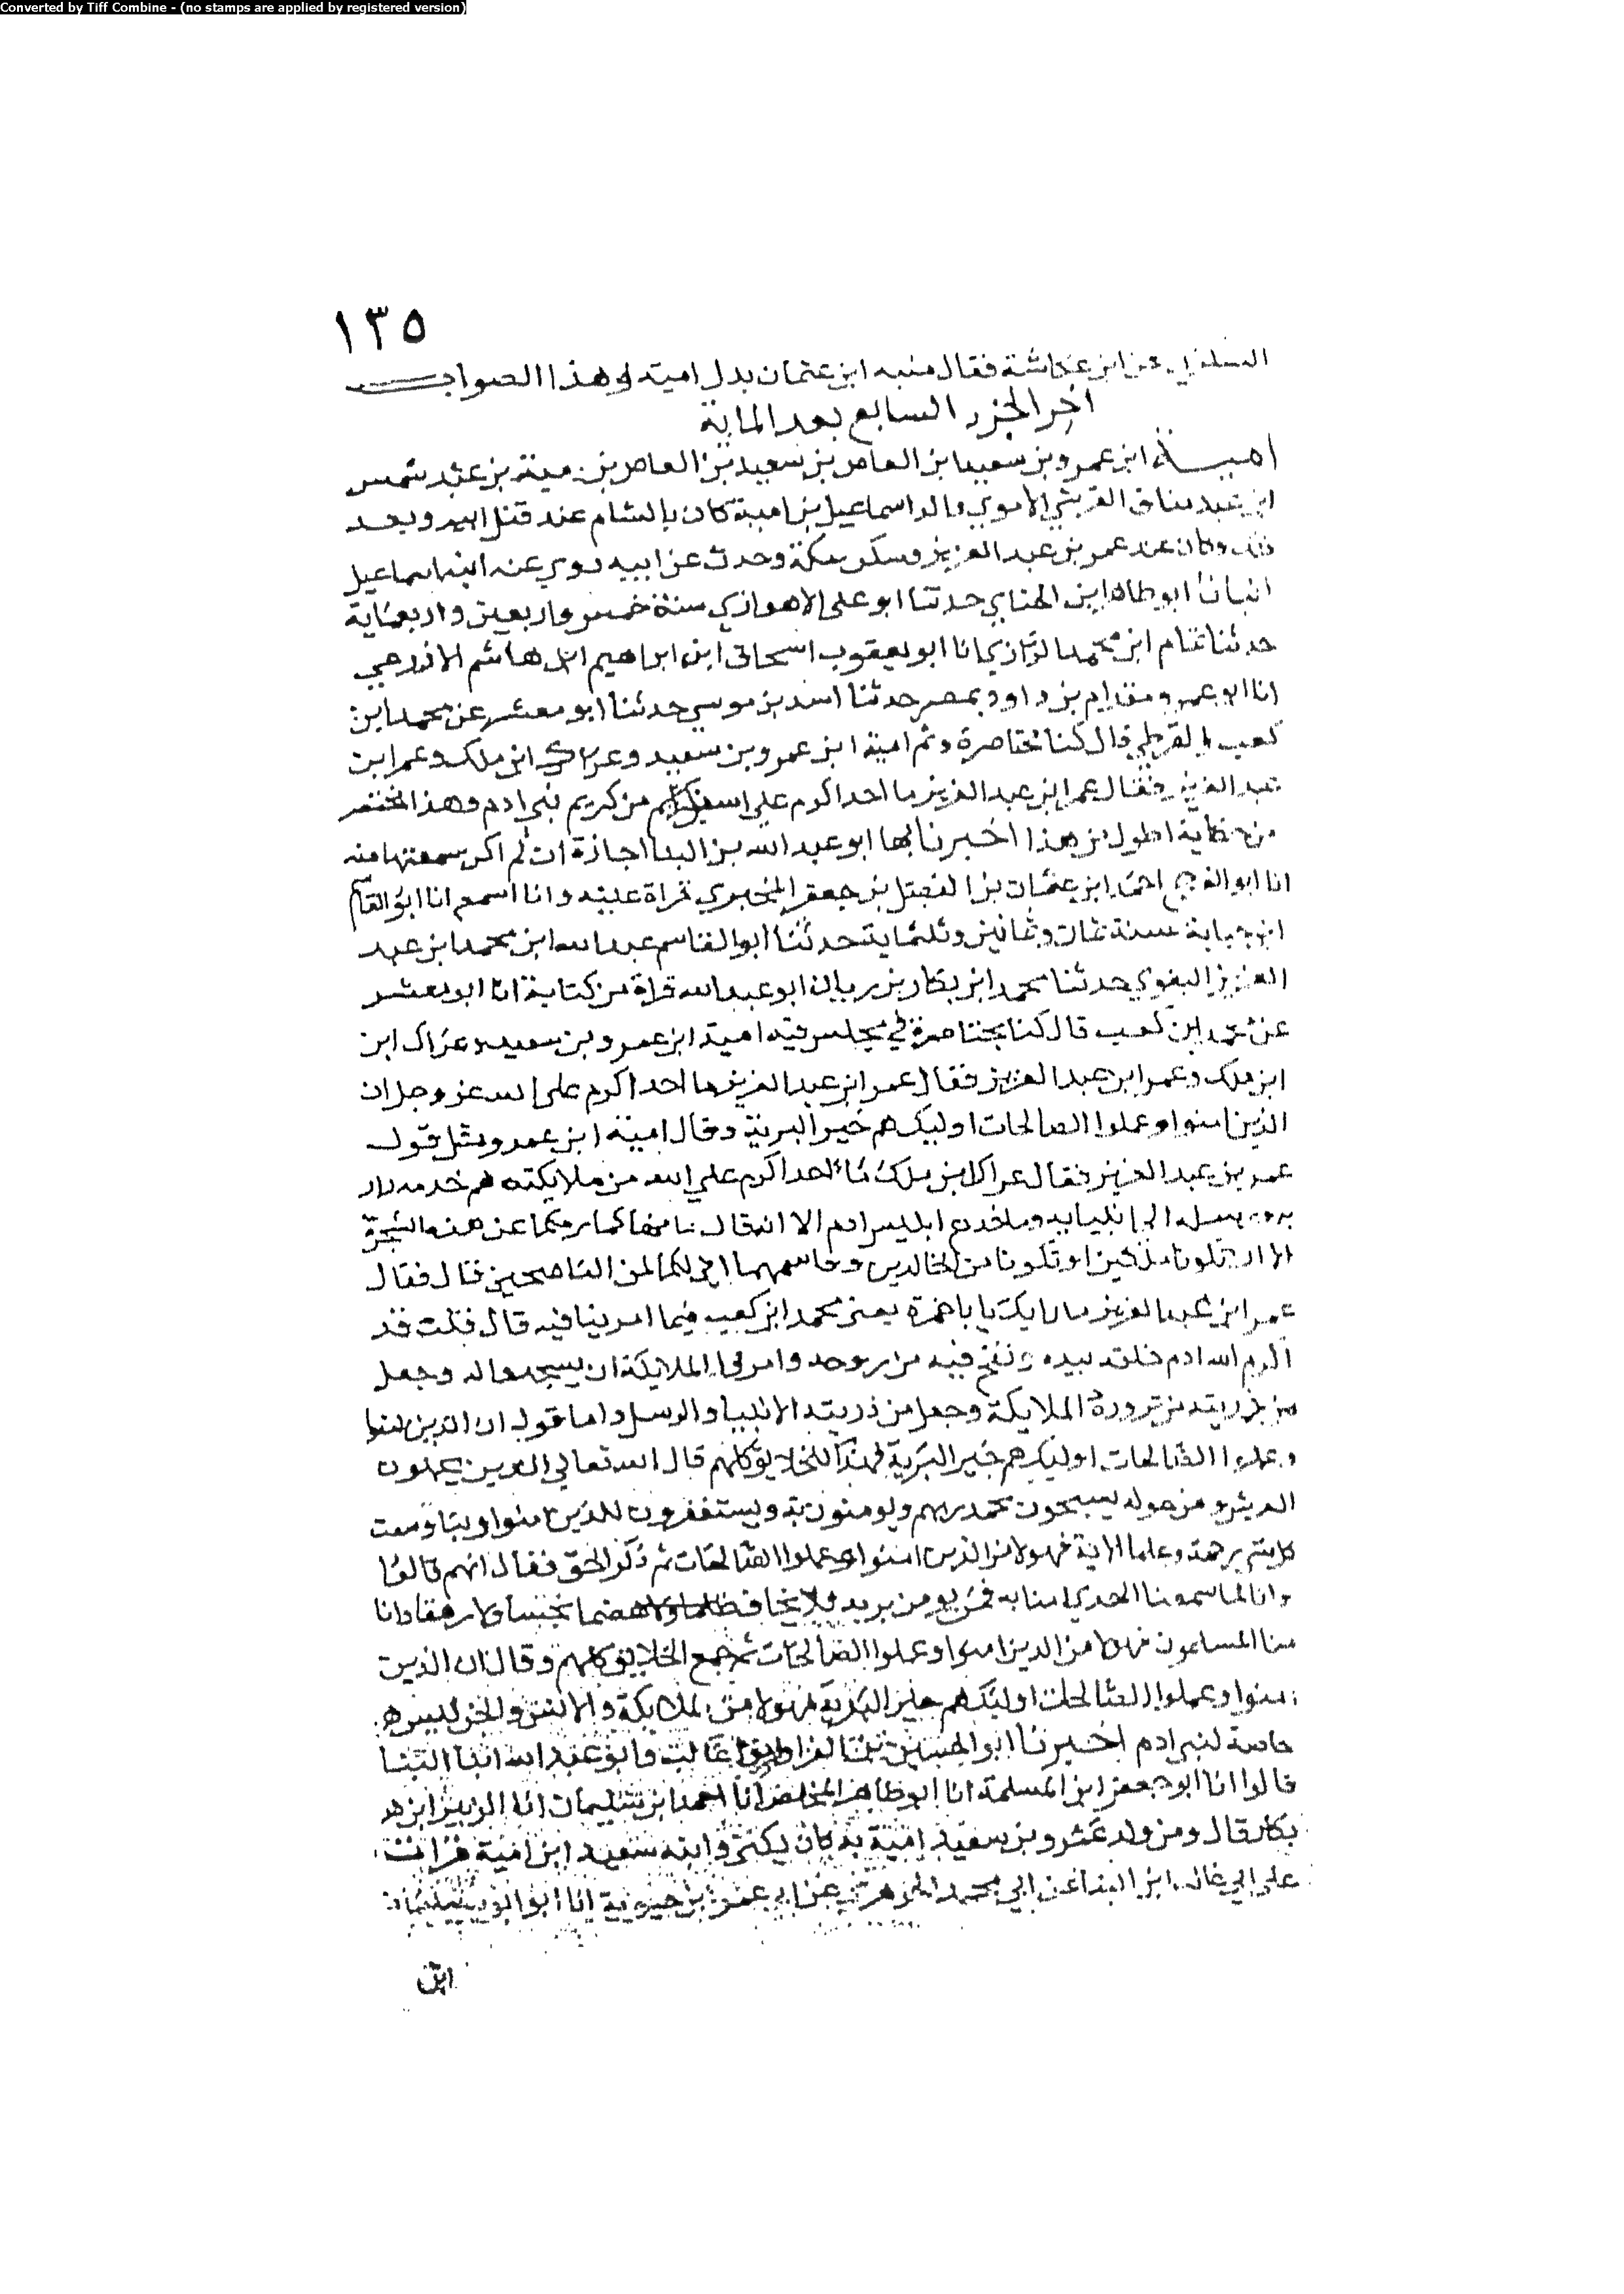 Converted by Tiff Combine - (no stamps are applied by registered version)
١٣٥
عن ابن عكاشة فقال منبه ابن عثمان بدل امية وهذا الصواب
اخر الجزء السابع بعد الماية
امية ابن عمرو بن سعيد ابن العاص بن سعيد بن العاص بن مية بن عبد شمس
ابن عبد مناف القرشي الاموي والد اسماعيل بن امية كان بالشام عند قتل ابيه وبعد
ذلك وكان عند عمر بن عبد العزيز وسكن مكة وحدث عن ابيه روي عنه ابنه اسماعيل
انبانا ابو طاهر ابن الحناي حدثنا ابو علي الاهوازي سنة خمس واربعين واربعماية
حدثنا تمام ابن محمد الرازي انا ابو يعقوب اسحاق ابن ابراهيم ابن هاشم الاذرعي
انا ابو عمرو مقدام بن داود بمصر حدثنا اسد بن موسي حدثنا ابو معشر عن محمد ابن
كعب القرظي قال كنا بخناصرة وثم امية ابن عمرو بن سعيد وعراك ابن ملك وعمر ابن
عبد العزيز فقال عمر ابن عبد العزيز ما احد اكرم علي الله من كريم بني ادم وهذا مختصر
من حكاية اطول من هذا اخبرنا بها ابو عبد الله بن البنا اجازة ان لم اكن سمعتها منه
انا ابو الفرج احمد ابن عثمان بن الفضل بن جعفر المخبزي قراة عليه وانا اسمع انا ابو القاسم
ابن حبابة سنة ثمان وثمانين وثلثماية حدثنا ابو القاسم عبد الله ابن محمد ابن عبد
العزيز البغوي حدثنا محمد ابن بكار بن ريان ابو عبد الله قراة من كتابه انا ابو معشر
عن محمد ابن كعب قال كنا بخناصرة في مجلس فيه امية ابن عمرو بن سعيد وعراك ابن
ابن ملك وعمر ابن عبد العزيز فقال عمر ابن عبد العزيز ما احد اكرم علي الله عز وجل ان
الذين امنوا وعملوا الصالحات اوليك هم خير البرية وقال امية ابن عمرو مثل قول
عمر بن عبد العزيز فقال عراك ابن ملك ما احد اكرم علي الله من ملايكته هم خدمه دار
ورسله الي انبيايه وما خدع ابليس ادم الا انه قال ما نهاكما ربكما عن هذه الشجرة
الا ان تكونا ملكين او تكونا من الخالدين وقاسمهما اني لكما لمن الناصحين قال فقال
عمر ابن عبد العزيز ما رايك يا با حمزة يعني محمد ابن كعب فيما امرينا فيه قال قلت قد
اكرم الله ادم خلقه بيده ونفخ فيه من روحه وامر الملايكة ان يسجدوا له وجعل
من ذريته من تزوره الملايكة وجعل من ذريته الانبيا والرسل واما قوله ان الذين امنوا
وعملوا الصالحات اوليك هم خير البرية فهذا للخلايق كلهم قال الله تعالي الذين يحملون
العرش ومن حوله يسبحون بحمد ربهم ويومنون به ويستغفرون للذين امنوا ربنا وسعت
كل شي رحمة وعلما الاية فهولا من الذين امنوا وعملوا الصالحات ثم ذكر الجن فقال انهم قالوا
وانا لما سمعنا الهدي امنا به فمن يومن بربه فلا يخاف بخسا ولا رهقا وانا
منا المسلمون فهولا من الذين امنوا وعملوا الصالحات ثم جمع الخلايق كلهم وقال ان الذين
امنوا وعملوا الصالحات اوليك هم خير البرية فهولا من الملايكة والانس والجن ليس هي
خاصة لبني ادم اخبرنا ابو الحسين بن الفرا وابو غالب وابو عبد الله ابنا البنا
قالوا انا ابو جعفر ابن المسلمة انا ابو طاهر المخلص انا احمد ابن سليمان انا الزبير ابن
بكار قال ومن ولد عمرو بن سعيد امية به كان يكنى وابنه سعيد ابن امية قرات
علي ابي غالب ابن البنا عن ابي محمد الجوهري عن ابي عمر بن حيوية انا ابو ايوب سليمان
ابن